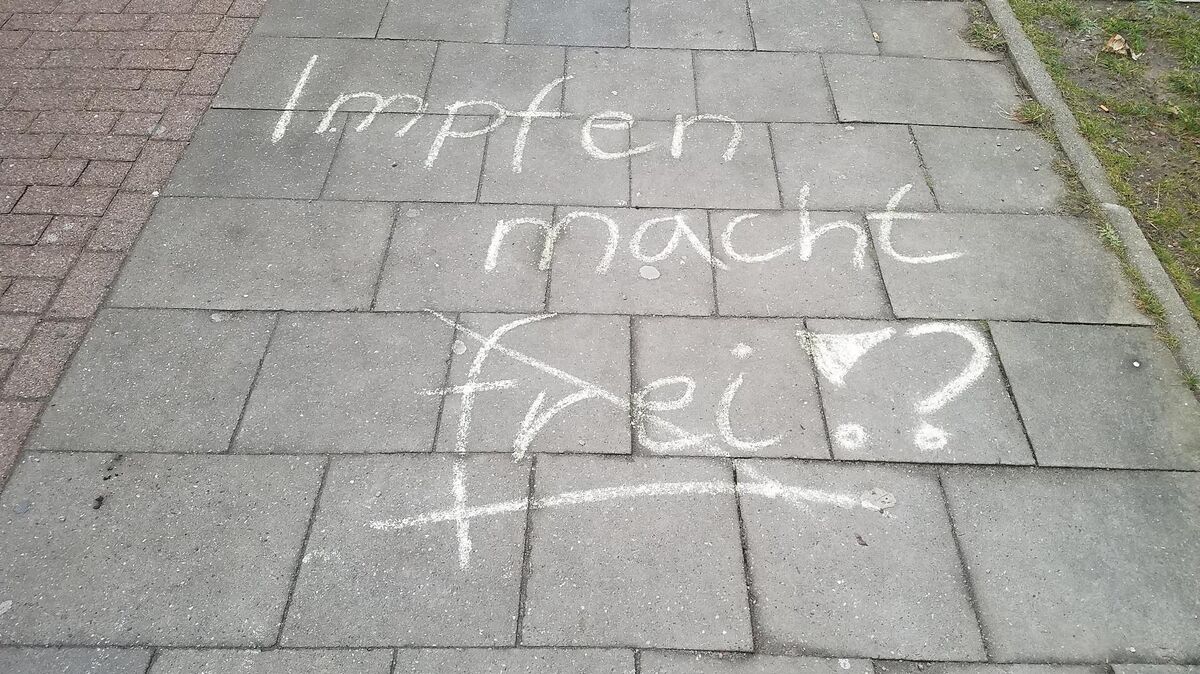 Impfen
macht
frei!?